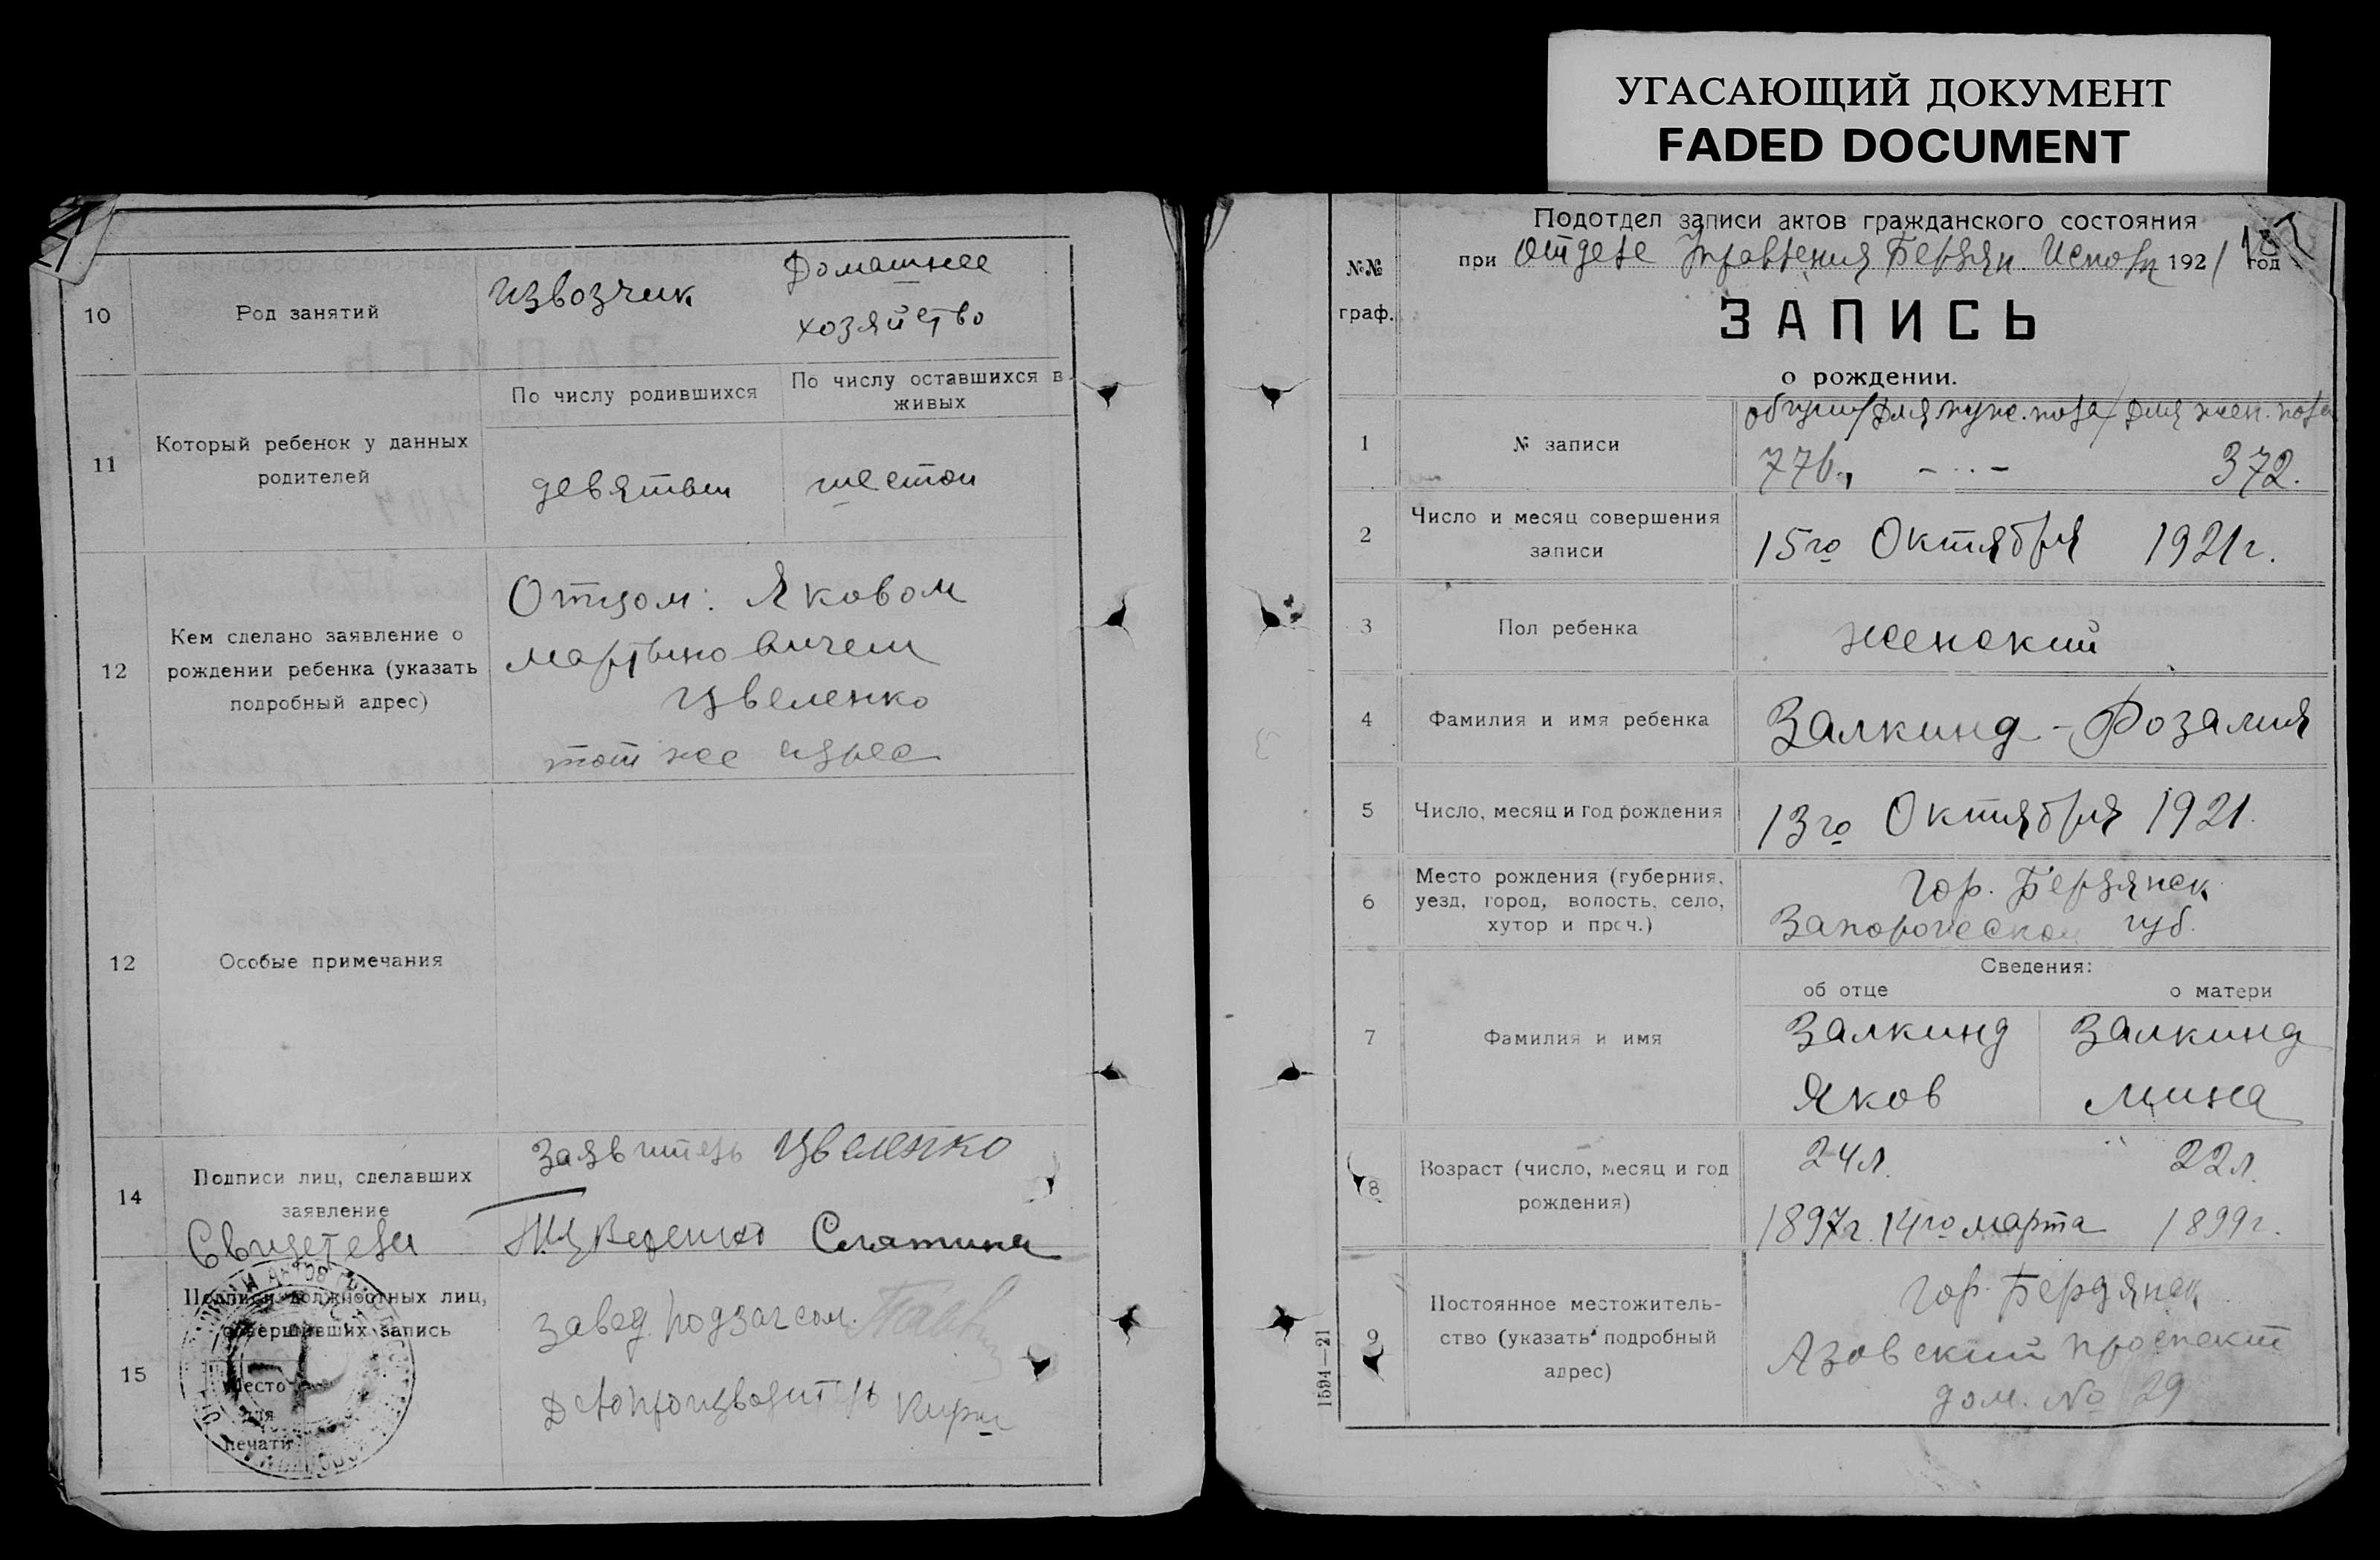 УГАСАЮЩИЙ ДОКУМЕНТ
FADED DOCUMENT
10
Род занятий
извозчик
Домашнее
хозяйство
11
Который ребенок у данных
родителей
По числу родившихся
По числу оставшихся в
живых
девятый
шестой
12
Кем сделано заявление о
рождении ребенка (указать
подробный адрес)
Отцом: Яковом
Мартыновичем
Цвеленко
тот же адрес
12
Особые примечания
14
Подписи лиц, сделавших
заявление
Заявитель Цвеленко
Свидетели
Слатина
15
Подписи должностных лиц,
совершивших запись
Место
для
печати
Завед. подзагсом.
Делопроизводитель
№№
граф.
Подотдел записи актов гражданского состояния
при Отделе Управления Бердян. Исполк 1921 год
ЗАПИСЬ
о рождении.
1
№ записи
общий/для муж. пола/для жен. пола
776., - .. - 372.
2
Число и месяц совершения
записи
15го Октября 1921г.
3
Пол ребенка
женский
4
Фамилия и имя ребенка
Залкинд - Розалия
5
Число, месяц и год рождения
13го Октября 1921.
6
Место рождения (губерния,
уезд, город, волость, село,
хутор и проч.)
Гор. Бердянск
Запорожской губ.
Сведения:
об отце
о матери
7
Фамилия и имя
Залкинд
Яков
Залкинд
Мина
8
Возраст (число, месяц и год
рождения)
24л.
22л.
1897г. 14го марта
1899г.
9
Постоянное местожитель-
ство (указать подробный
адрес)
Гор. Бердянск
Азовский проспект
дом. № 29
1594—21